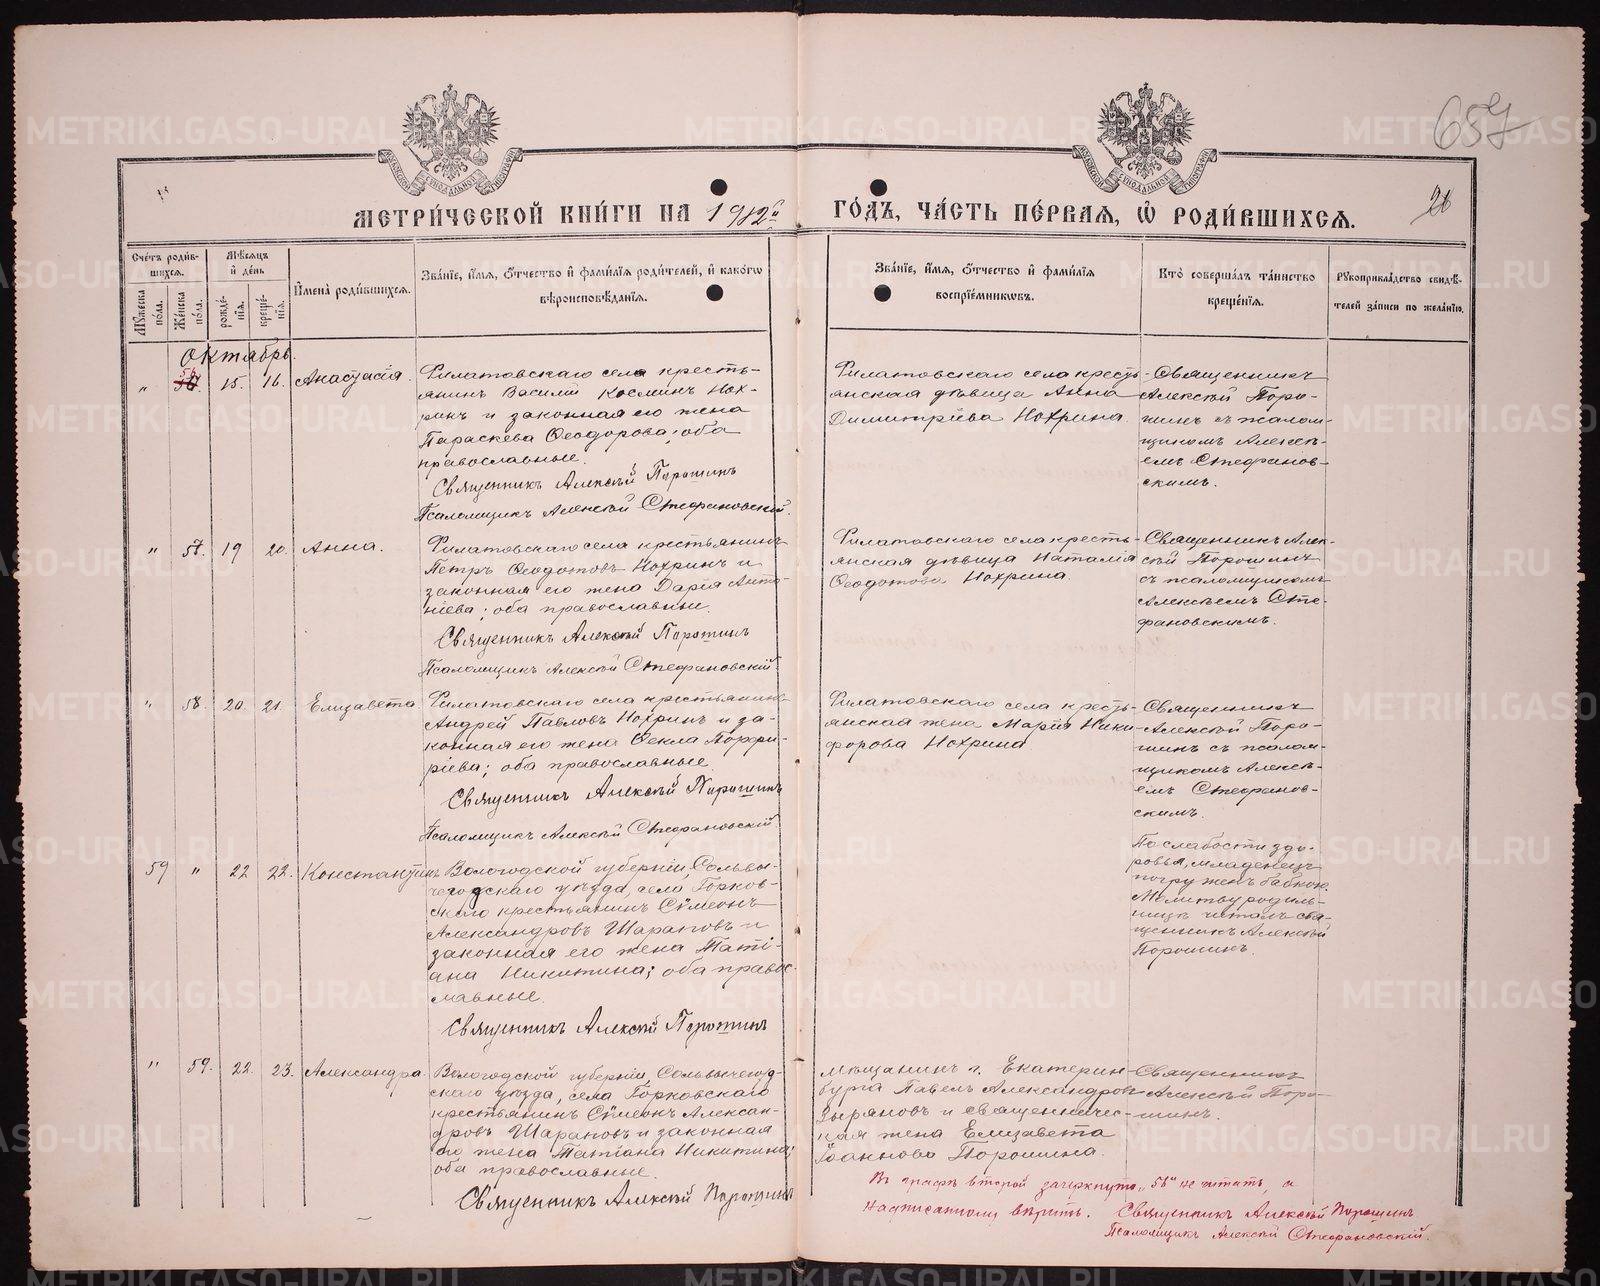 657
26
МЕТРИЧЕСКОЙ КНИГИ НА 1912й ГОДЪ, ЧАСТЬ ПЕРВАЯ, Ѡ РОДИВШИХСЯ.
Счетъ родив-
шихся.
Мужеска
пола.
Женска
пола.
Мѣсяцъ
и день
рожде-
нія.
креще-
нія.
Имена родившихся.
Званіе, имя, отчество и фамилія родителей, и какогѡ
вѣроисповѣданія.
Званіе, имя, отчество и фамилія
воспріемниковъ.
Кто совершалъ таинство
крещенія.
Рукоприкладство свидѣ-
телей записи по желанію.
Октябрь.
" 56. 15. 16. Анастасія.
Филатовскаго села кресть-
янинъ Василій Космин Нох-
ринъ и законная его жена
Параскева Ѳеодорова; оба
православные.
Священникъ Алексѣй Порошинъ
Псаломщикъ Алексѣй Стефановскій.
Филатовскаго села кресть-
янская дѣвица Анна
Димитріева Нохрина.
Священникъ
Алексѣй Поро-
шинъ съ псалом-
щикомъ Алексѣ-
емъ Стефанов-
скимъ.
" 57. 19 20. Анна.
Филатовскаго села крестьянинъ
Петръ Ѳеодотовъ Нохринъ и
законная его жена Дарія Анто-
ніева; оба православные.
Священникъ Алексѣй Порошинъ
Псаломщикъ Алексѣй Стефановскій.
Филатовскаго села кресть-
янская дѣвица Наталія
Ѳеодотова Нохрина.
Священникъ Алек-
сѣй Порошинъ
съ псаломщикомъ
Алексѣемъ Сте-
фановскимъ.
" 58. 20. 21. Елизавета.
Филатовскаго села крестьянинъ
Андрей Павловъ Нохринъ и за-
конная его жена Ѳекла Порфи-
ріева; оба православные
Священникъ Алексѣй Порошинъ
Псаломщикъ Алексѣй Стефановскій.
Филатовскаго села кресть-
янская жена Марія Ники-
форова Нохрина
Священникъ
Алексѣй Поро-
шинъ съ псалом-
щикомъ Алексѣ-
емъ Стефанов-
скимъ.
59 " 22 22. Константинъ
Вологодской губерніи, Сольвы-
чегодскаго уѣзда, села Горков-
скаго крестьянинъ Сѵмеонъ
Александровъ Шараповъ и
законная его жена Таті-
ана Никитина; оба правос-
лавные.
Священникъ Алексѣй Порошинъ
По слабости здо-
ровья, младенецъ
погруженъ бабкою.
Молитву родиль-
ницѣ читалъ свя-
щенникъ Алексѣй
Порошинъ.
" 59. 22. 23. Александра.
Вологодской губерніи, Сольвычегод-
скаго уѣзда, села Горковскаго
крестьянинъ Сѵмеонъ Алексан-
дровъ Шараповъ и законная
его жена Татіана Никитина;
оба православные.
Священникъ Алексѣй Порошинъ
Мѣщанинъ г. Екатерин-
бурга Павелъ Александровъ
Зыряновъ и священничес-
кая жена Елизавета
Іоаннова Порошина.
Священникъ
Алексѣй Поро-
шинъ.
Въ графѣ второй зачеркнуто „56" не читать, а
надписанному вѣрить. Священникъ Алексѣй Порошинъ
Псаломщикъ Алексѣй Стефановскій.
METRIKI.GASO-URAL.RU